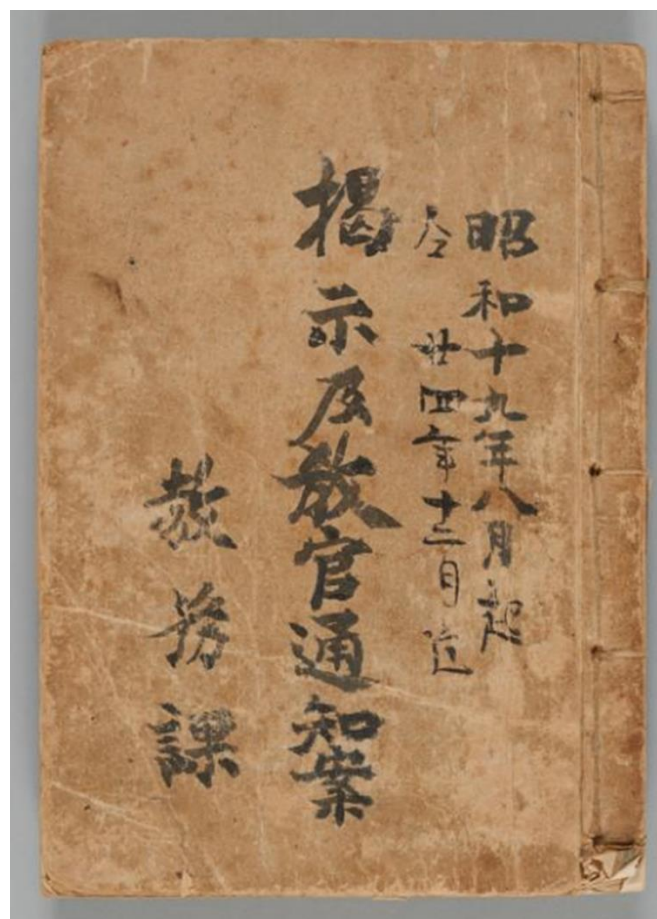 昭和十九年八月起
仝廿四年十二月迄
揭示及教官通知案
教務課